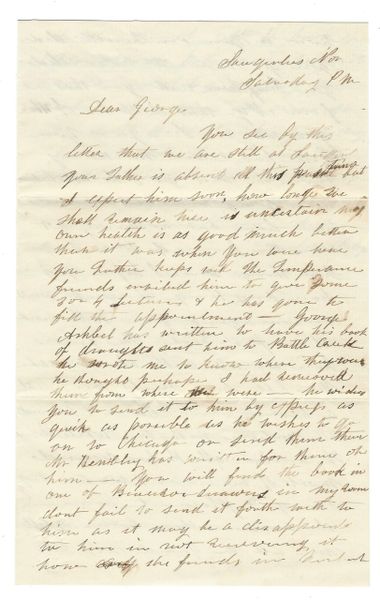 Saugerties Nov
Saturday P M
Dear George
You see by this
letter that we are still at
your Father is absent at this time but
I expect him soon, how long we
shall remain here is uncertain my
own health is as good much better
than it was when you were here
you Father keeps well the Temperance
friends invited him to give some
3 or 4 lectures & he has gone to
fill the appointment — George
has written to have his book
of draughts sent him to Battle Creek
he wrote me to know where they were
he thought perhaps I had removed
them from where they were — he wishes
you to send it to him by express as
quick as possible as he wishes to go
on to Chicago or send them there
Mr Bentley has written for them of
him — You will find the book in
one of Bureau in my room
dont fail to send it forth with to
him as it may be a disappoint
to him in not receiving it
how the friends in